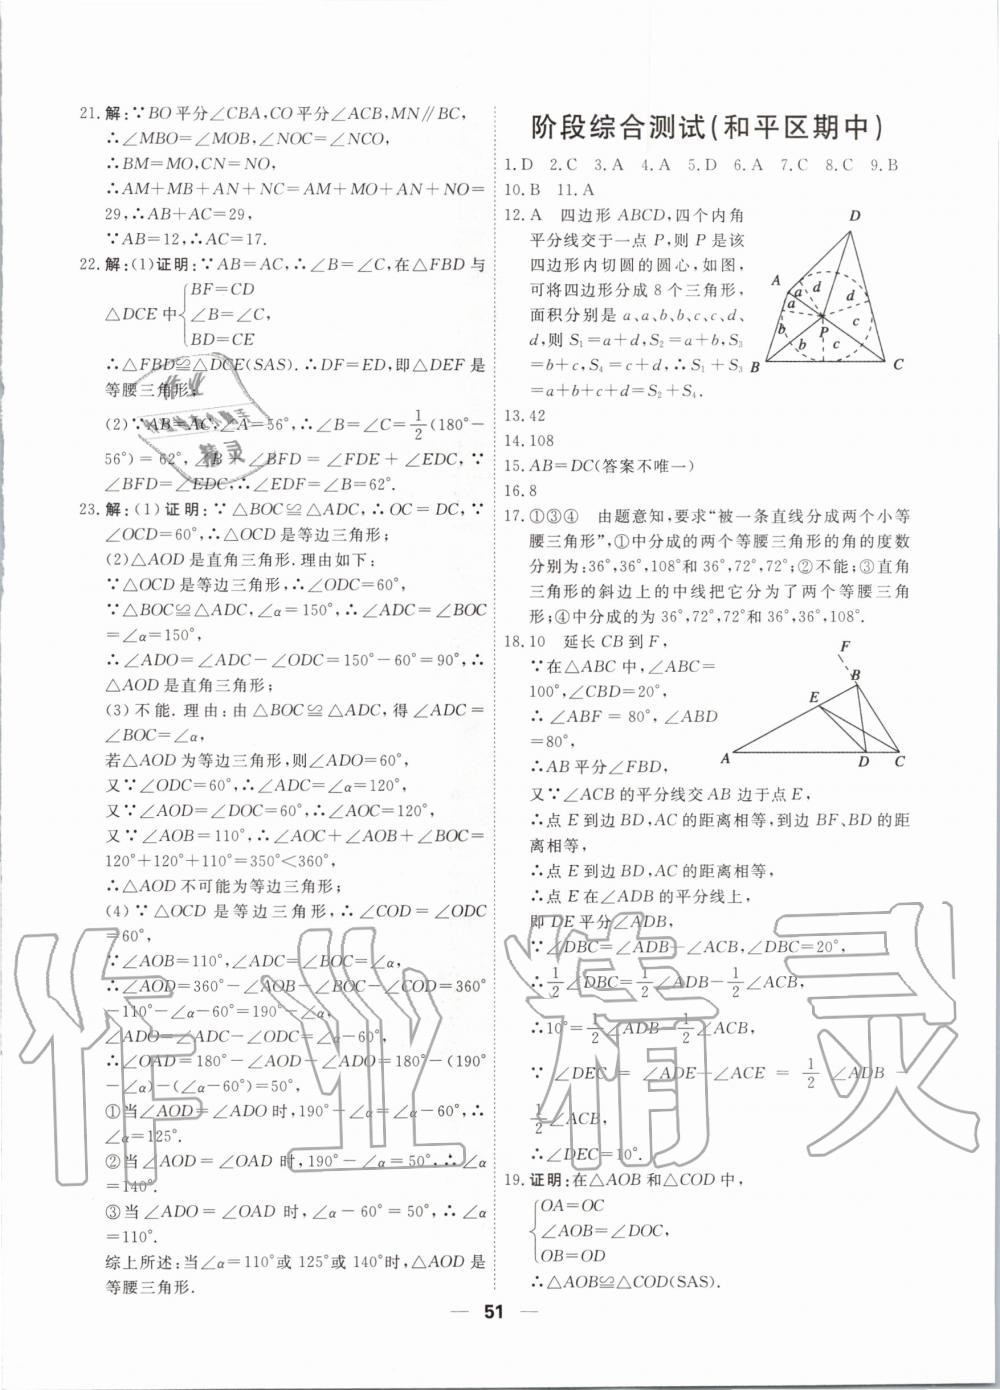 21.解:∵BO平分∠CBA,CO平分∠ACB,MN∥BC,
∴∠MBO=∠MOB,∠NOC=∠NCO,
∴BM=MO,CN=NO,
∴AM+MB+AN+NC=AM+MO+AN+NO=
29,∴AB+AC=29,
∵AB=12,∴AC=17.
22.解:(1)证明:∵AB=AC,∴∠B=∠C,在△FBD与
△DCE中{BF=CD
∠B=∠C,
BD=CE
∴△FBD≌△DCE(SAS).∴DF=ED,即△DEF是
等腰三角形;
(2)∵AB=AC,∠A=56°,∴∠B=∠C=1/2(180°-
56°)=62°,∠B+∠BFD=∠FDE+∠EDC,∵
∠BFD=∠EDC,∴∠EDF=∠B=62°.
23.解:(1)证明:∵△BOC≌△ADC,∴OC=DC,∵
∠OCD=60°,∴△OCD是等边三角形;
(2)△AOD是直角三角形.理由如下:
∵△OCD是等边三角形,∴∠ODC=60°,
∵△BOC≌△ADC,∠α=150°,∴∠ADC=∠BOC
=∠α=150°,
∴∠ADO=∠ADC-∠ODC=150°-60°=90°,∴
△AOD是直角三角形;
(3)不能.理由:由△BOC≌△ADC,得∠ADC=
∠BOC=∠α,
若△AOD为等边三角形,则∠ADO=60°,
又∵∠ODC=60°,∴∠ADC=∠α=120°,
又∵∠AOD=∠DOC=60°,∴∠AOC=120°,
又∵∠AOB=110°,∴∠AOC+∠AOB+∠BOC=
120°+120°+110°=350°<360°,
∴△AOD不可能为等边三角形;
(4)∵△OCD是等边三角形,∴∠COD=∠ODC
=60°,
∵∠AOB=110°,∠ADC=∠BOC=∠α,
∴∠AOD=360°-∠AOB-∠BOC-∠COD=360°
-110°-∠α-60°=190°-∠α,
∠ADO=∠ADC-∠ODC=∠α-60°,
∴∠OAD=180°-∠AOD-∠ADO=180°-(190°
-∠α)-(∠α-60°)=50°,
①当∠AOD=∠ADO时,190°-∠α=∠α-60°,∴
∠α=125°.
②当∠AOD=∠OAD时,190°-∠α=50°,∴∠α
=140°.
③当∠ADO=∠OAD时,∠α-60°=50°,∴∠α
=110°.
综上所述:当∠α=110°或125°或140°时,△AOD是
等腰三角形.
阶段综合测试(和平区期中)
1.D 2.C 3.A 4.A 5.D 6.A 7.C 8.C 9.B
10.B 11.A
12.A 四边形ABCD,四个内角
平分线交于一点P,则P是该
四边形内切圆的圆心,如图,
可将四边形分成8个三角形,
面积分别是a、a、b、b、c、c、d、
d,则S₁=a+d,S₂=a+b,S₃
=b+c,S₄=c+d,∴S₁+S₃
=a+b+c+d=S₂+S₄.
D
A
a d
a d
P
b c
b c
B C
13.42
14.108
15.AB=DC(答案不唯一)
16.8
17.①③④ 由题意知,要求“被一条直线分成两个小等
腰三角形”,①中分成的两个等腰三角形的角的度数
分别为:36°,36°,108°和36°,72°,72°;②不能;③直角
三角形的斜边上的中线把它分为了两个等腰三角
形;④中分成的为36°,72°,72°和36°,36°,108°.
18.10 延长CB到F,
∵在△ABC中,∠ABC=
100°,∠CBD=20°,
∴∠ABF=80°,∠ABD
=80°,
∴AB平分∠FBD,
F
B
E
A D C
又∵∠ACB的平分线交AB边于点E,
∴点E到边BD,AC的距离相等,到边BF、BD的距
离相等,
∴点E到边BD,AC的距离相等,
∴点E在∠ADB的平分线上,
即DE平分∠ADB,
∵∠DBC=∠ADB-∠ACB,∠DBC=20°,
∴1/2∠DBC=1/2∠ADB-1/2∠ACB,
∴10°=1/2∠ADB-1/2∠ACB,
∵∠DEC=∠ADE-∠ACE=1/2∠ADB-
1/2∠ACB,
∴∠DEC=10°.
19.证明:在△AOB和△COD中,
{OA=OC
∠AOB=∠DOC,
OB=OD
∴△AOB≌△COD(SAS).
51
作业精灵